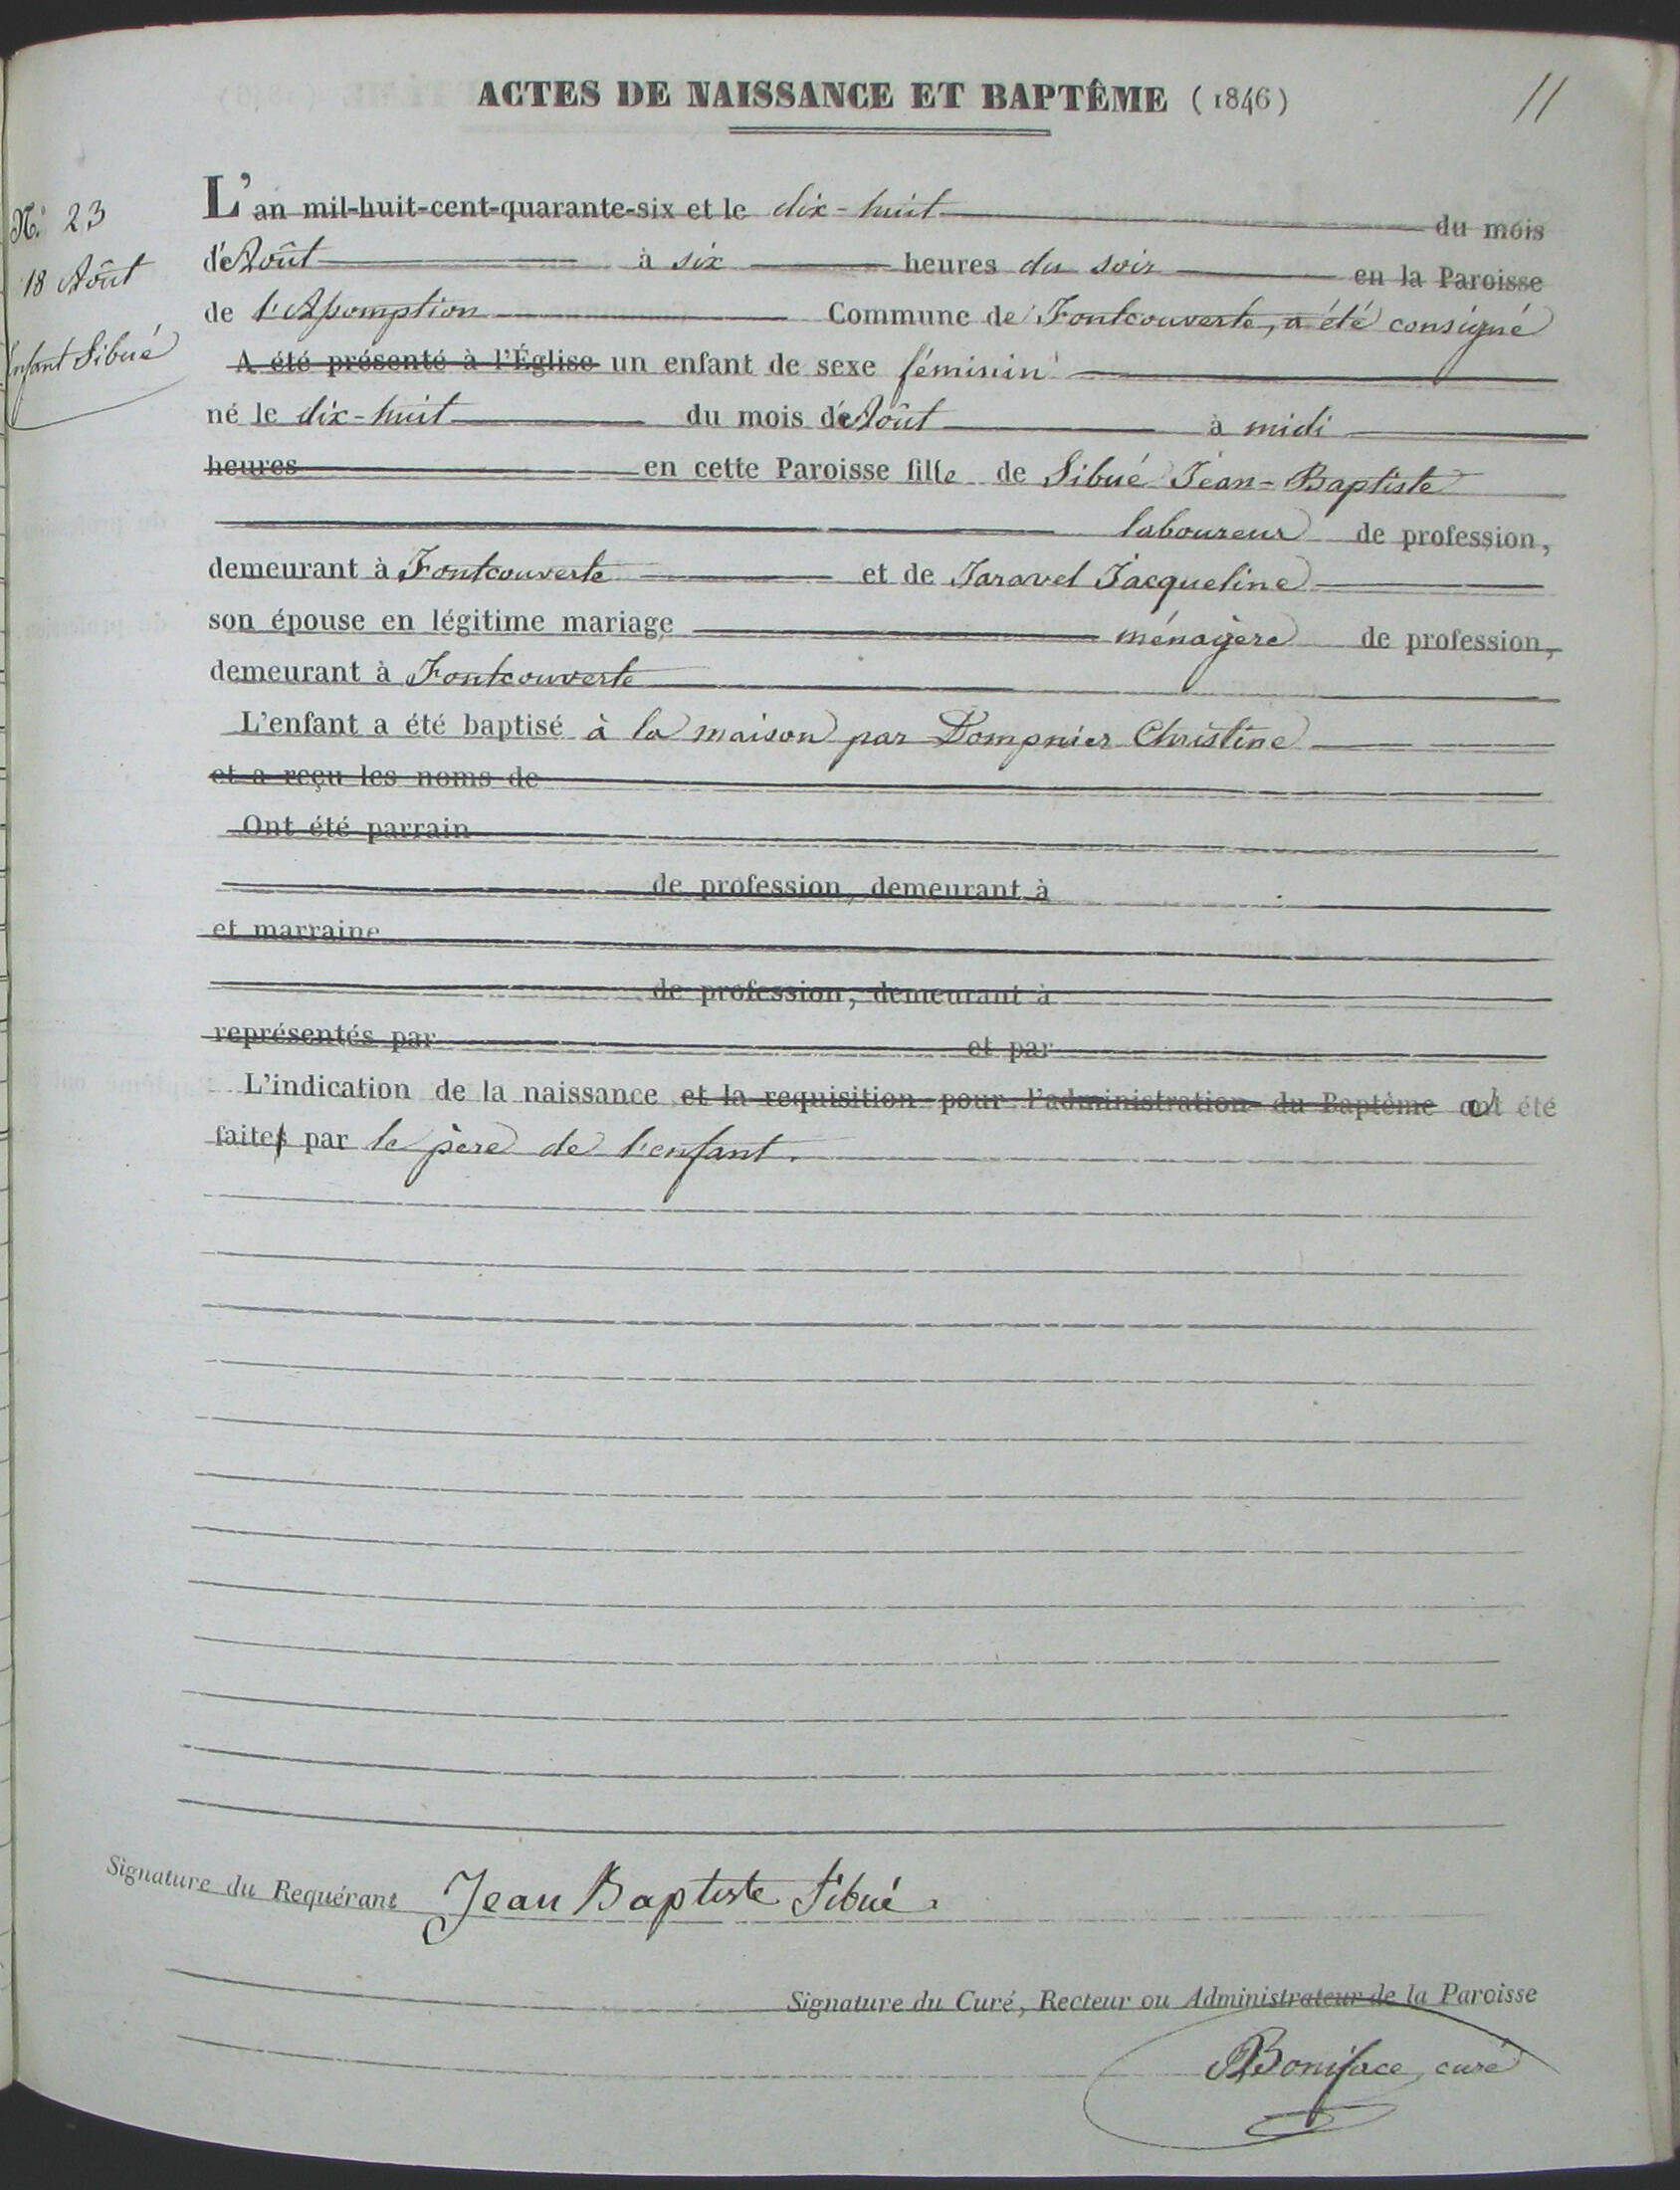 ACTES DE NAISSANCE ET BAPTÊME (1846)
11
N.° 23
18 Août
Enfant Sibué
L'an mil-huit-cent-quarante-six et le dix-huit du mois
d'Août à six heures du soir en la Paroisse
de l'Assomption Commune de Fontcouverte, a été consigné
A été présenté à l'Église un enfant de sexe féminin
né le dix-huit du mois d'Août à midi
heures en cette Paroisse fille de Sibué Jean-Baptiste
laboureur de profession,
demeurant à Fontcouverte et de Jaravel Jacqueline
son épouse en légitime mariage ménagère de profession,
demeurant à Fontcouverte
L'enfant a été baptisé à la maison par Dompnier Christine
et a reçu les noms de
Ont été parrain
de profession, demeurant à
et marraine
de profession, demeurant à
représentés par et par
L'indication de la naissance et la requisition pour l'administration du Baptême a été
faite par le père de l'enfant.
Signature du Requérant Jean Baptiste Sibué
Signature du Curé, Recteur ou Administrateur de la Paroisse
Boniface, curé